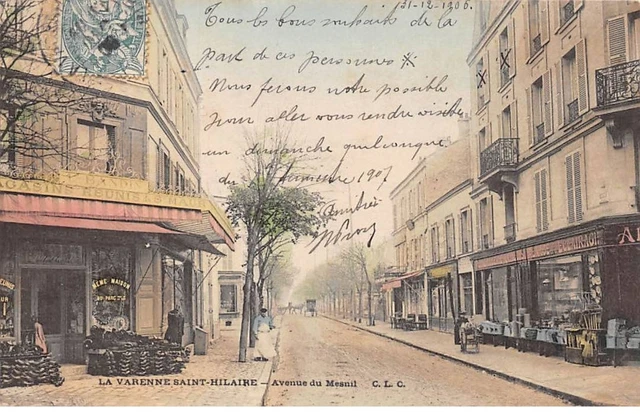 31-12-1906.
Tous les bons souhaits de la
part de ces personnes ※
Nous ferons notre possible
pour aller vous rendre visite
un dimanche quelconque
du 1907
Amitiés
MÊME MAISON
AU PARC
LA VARENNE SAINT-HILAIRE - Avenue du Mesnil C. L. C.